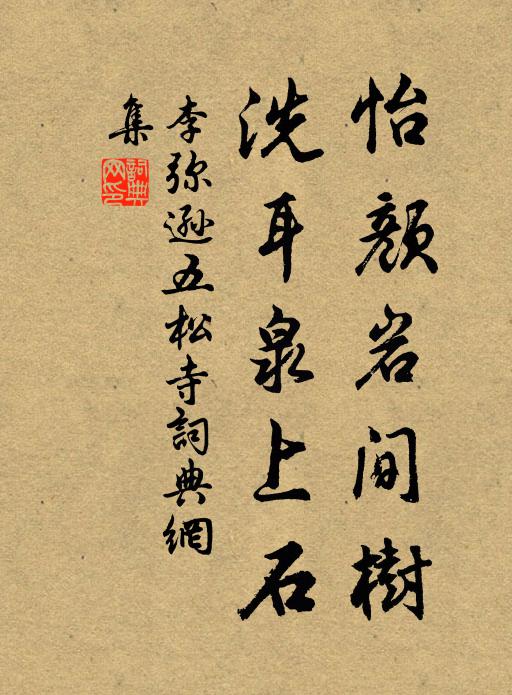 怡颜岩间樹
洗耳泉上石
李弥遜五松寺詞典網
集
詞典
网印